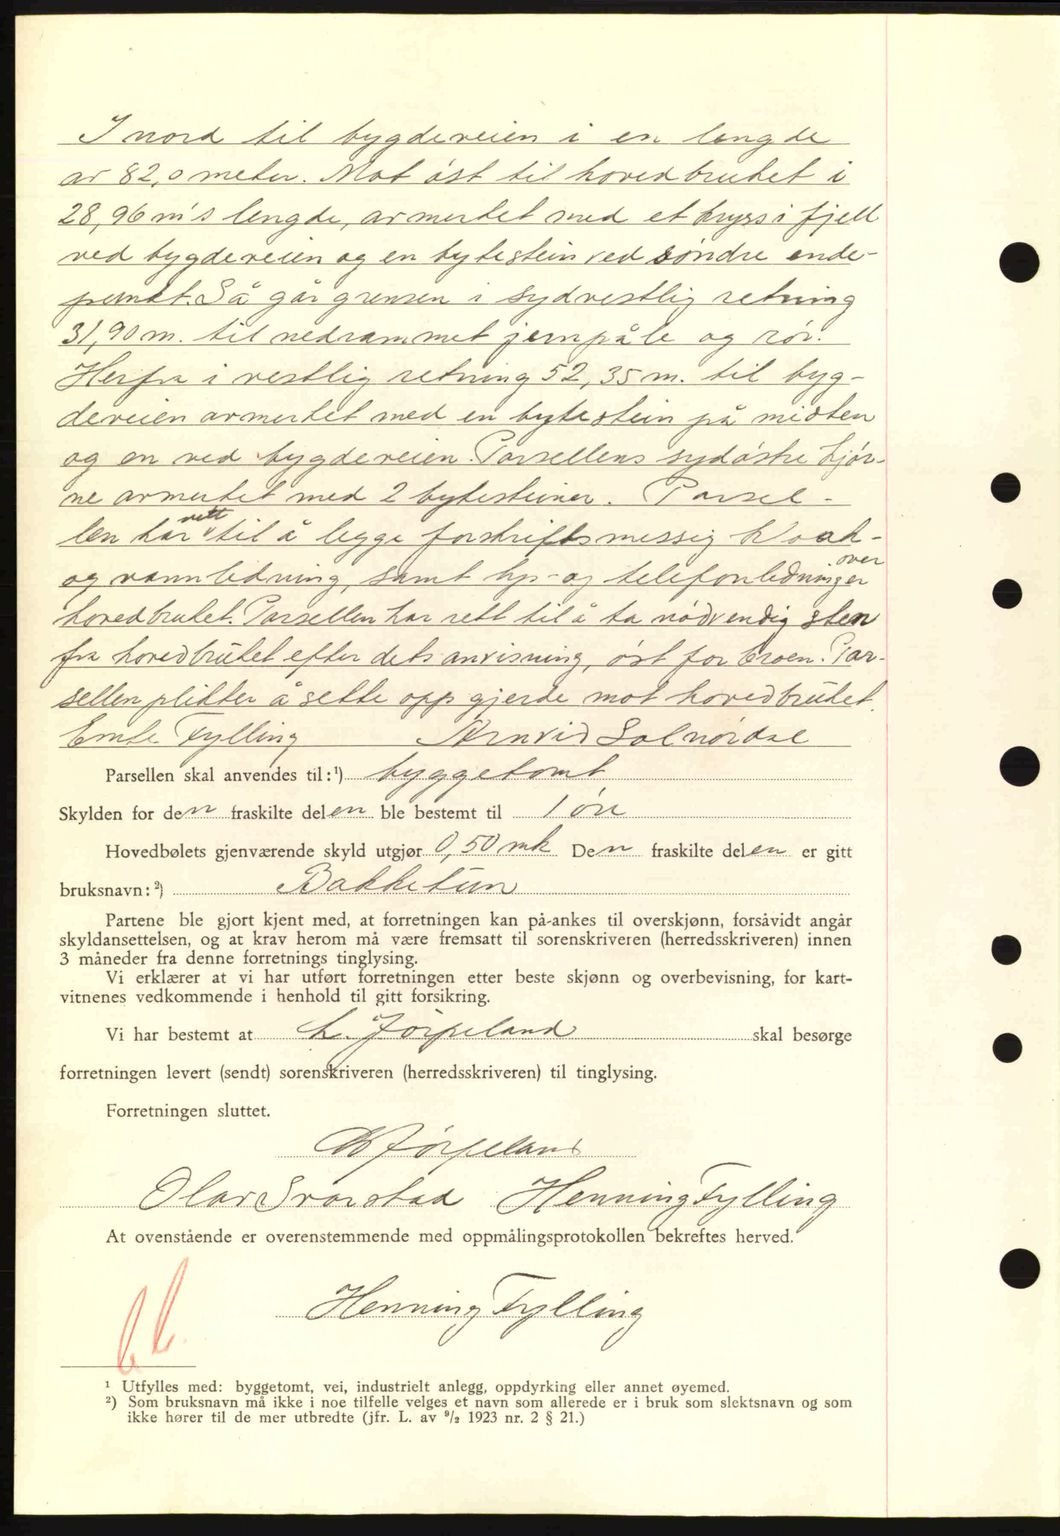 I nord til bygdeveien i en lengde
av 82,0 meter. Mot øst til hovedbruket i
28,96 m's lengde, avmerket med et kryss i fjell
ved bygdeveien og en bytestein ved söndre ende-
punkt. Så går grensen i sydvestlig retning
31,90 m. til nedrammet jernpåle og rör.
Herfra i vestlig retning 52,35 m. til byg-
deveien avmerket med en bytestein på midten
og en ved bygdeveien. Parsellens sydöstre hjör-
ne avmerket med 2 bytesteiner. Parsel-
len har rett til å legge forskriftsmessig kloak-
og vannledning, samt lys- og telefonledninger over
hovedbruket. Parsellen har rett til å ta nödvendig sten
fra hovedbruket efter dets anvisning, öst for broen. Par-
sellen plikter å sette opp gjerde mot hovedbruket.
Fylling Arnvid Solnördal
Parsellen skal anvendes til:¹) byggetomt
Skylden for den fraskilte delen ble bestemt til 1 øre
Hovedbølets gjenværende skyld utgjør 0,50 mk Den fraskilte delen er gitt
bruksnavn:²) Bakketun
Partene ble gjort kjent med, at forretningen kan på-ankes til overskjønn, forsåvidt angår
skyldansettelsen, og at krav herom må være fremsatt til sorenskriveren (herredsskriveren) innen
3 måneder fra denne forretnings tinglysing.
Vi erklærer at vi har utført forretningen etter beste skjønn og overbevisning, for kart-
vitnenes vedkommende i henhold til gitt forsikring.
Vi har bestemt at L. Jörpeland skal besørge
forretningen levert (sendt) sorenskriveren (herredsskriveren) til tinglysing.
Forretningen sluttet.
Jörpeland
Olav Svorstad Henning Fylling
At ovenstående er overenstemmende med oppmålingsprotokollen bekreftes herved.
Henning Fylling
¹ Utfylles med: byggetomt, vei, industrielt anlegg, oppdyrking eller annet øyemed.
²) Som bruksnavn må ikke i noe tilfelle velges et navn som allerede er i bruk som slektsnavn og som
ikke hører til de mer utbredte (jfr. L. av ⁹/₂ 1923 nr. 2 § 21.)